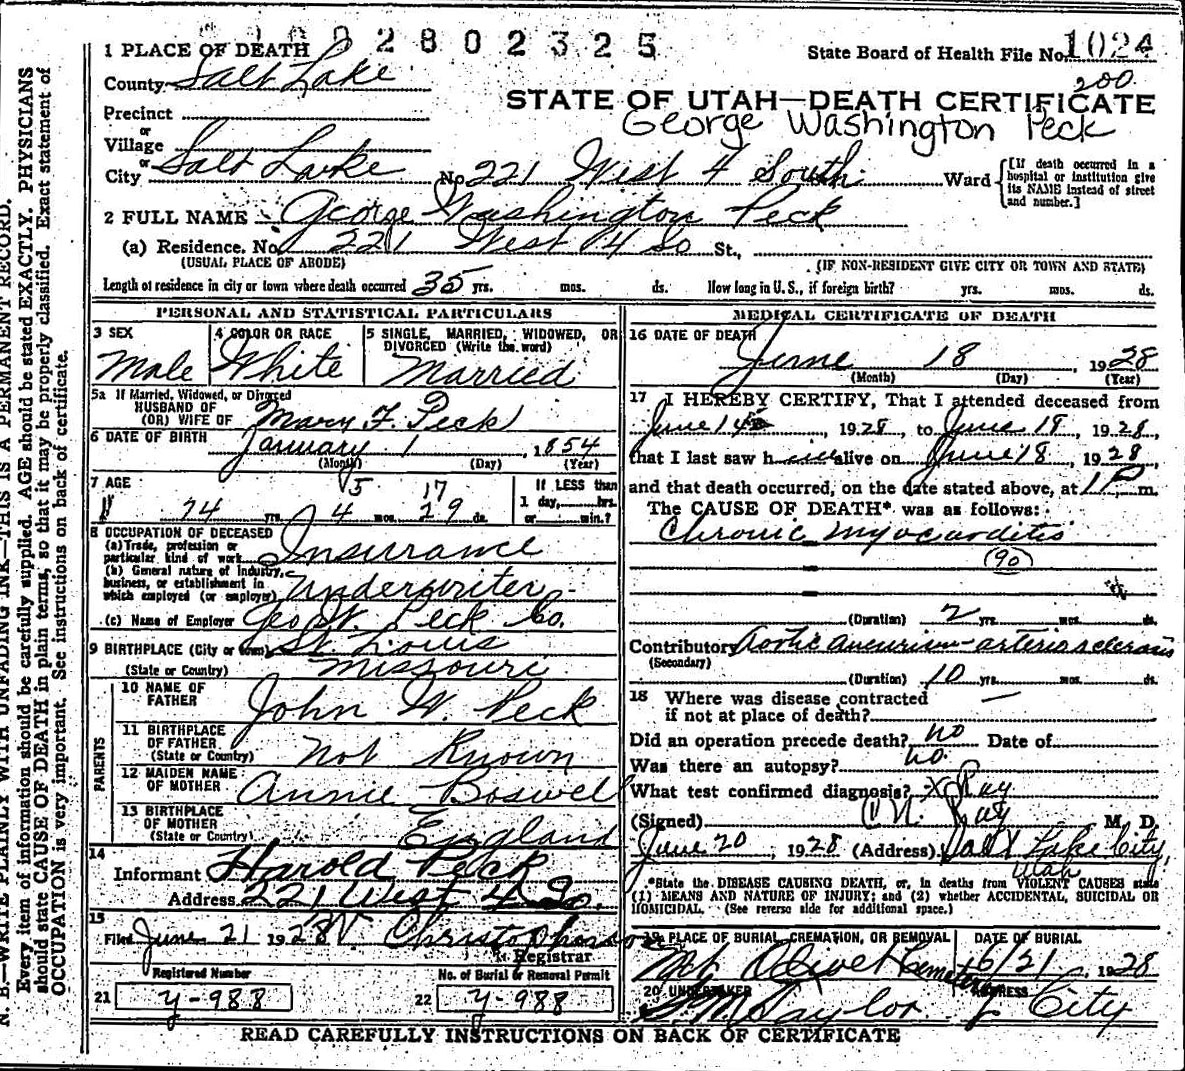 2802325
1 PLACE OF DEATH
State Board of Health File No. 1024
County Salt Lake
200
STATE OF UTAH—DEATH CERTIFICATE
Precinct
George Washington Peck
or
Village
or
City Salt Lake No. 221 West 4 South Ward
[If death occurred in a hospital or institution give its NAME instead of street and number.]
2 FULL NAME George Washington Peck
(a) Residence. No. 221 West 4 So St,
(USUAL PLACE OF ABODE) (IF NON-RESIDENT GIVE CITY OR TOWN AND STATE)
Length of residence in city or town where death occurred 35 yrs. mos. ds. How long in U. S., if foreign birth? yrs. mos. ds.
PERSONAL AND STATISTICAL PARTICULARS
3 SEX Male
4 COLOR OR RACE White
5 SINGLE, MARRIED, WIDOWED, OR DIVORCED (Write the word)
Married
5a If Married, Widowed, or Divorced
HUSBAND OF
(OR) WIFE OF Mary F. Peck
6 DATE OF BIRTH January 1, 1854
(Month) (Day) (Year)
7 AGE 5 17
74 yrs. 4 mos. 29 ds.
If LESS than
1 day, hrs.
or min.?
8 OCCUPATION OF DECEASED
(a) Trade, profession or
particular kind of work Insurance
(b) General nature of Industry,
business, or establishment in
which employed (or employer) Underwriter
(c) Name of Employer Geo W. Peck Co.
9 BIRTHPLACE (City or town) St. Louis
(State or Country) Missouri
PARENTS
10 NAME OF
FATHER John W. Peck
11 BIRTHPLACE
OF FATHER
(State or Country) Not Known
12 MAIDEN NAME
OF MOTHER Annie Boswell
13 BIRTHPLACE
OF MOTHER
(State or Country) England
14
Informant Harold Peck
Address 221 West 4 So.
15
Filed June 21 1928
Registrar
Registered Number
No. of Burial or Removal Permit
21 y-988
22 y-988
MEDICAL CERTIFICATE OF DEATH
16 DATE OF DEATH
June 18, 1928
(Month) (Day) (Year)
17 I HEREBY CERTIFY, That I attended deceased from
June 14, 1928, to June 18, 1928,
that I last saw h alive on June 18, 1928,
and that death occurred, on the date stated above, at 1 P. m.
The CAUSE OF DEATH* was as follows:
Chronic myocarditis
(90)
(Duration) 2 yrs. mos. ds.
Contributory Aortic aneurism - arteriosclerosis
(Secondary)
(Duration) 10 yrs. mos. ds.
18 Where was disease contracted
if not at place of death? —
Did an operation precede death? no Date of
Was there an autopsy? no.
What test confirmed diagnosis? X Ray
(Signed) Ray M. D.
June 20, 1928 (Address) Salt Lake City,
Utah
*State the DISEASE CAUSING DEATH, or, in deaths from VIOLENT CAUSES state
(1) MEANS AND NATURE OF INJURY; and (2) whether ACCIDENTAL, SUICIDAL OR
HOMICIDAL. (See reverse side for additional space.)
19 PLACE OF BURIAL, CREMATION, OR REMOVAL
Mt. Olivet Cemetery
DATE OF BURIAL
6/21 1928
20 UNDERTAKER
S M Taylor
ADDRESS
City
READ CAREFULLY INSTRUCTIONS ON BACK OF CERTIFICATE
N. B.—WRITE PLAINLY WITH UNFADING INK—THIS IS A PERMANENT RECORD.
Every item of information should be carefully supplied. AGE should be stated EXACTLY. PHYSICIANS
should state CAUSE OF DEATH in plain terms, so that it may be properly classified. Exact statement of
OCCUPATION is very important. See instructions on back of certificate.